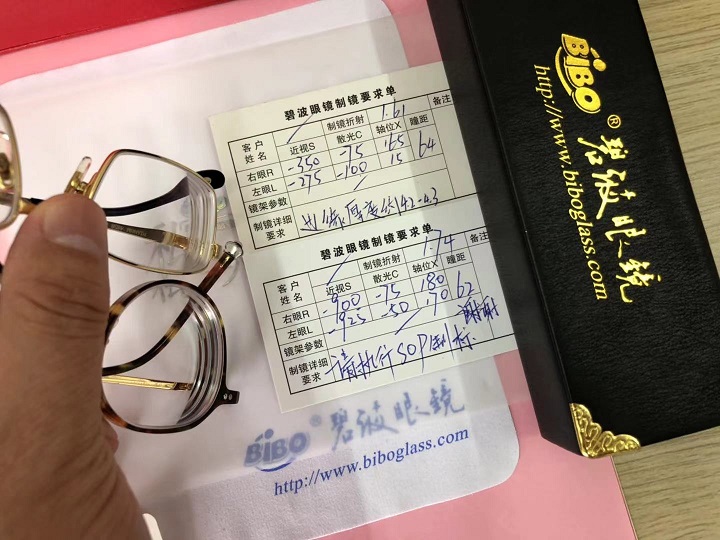 碧波眼镜制镜要求单
客户姓名 制镜折射 1.61 备注
近视S 散光C 轴位X 瞳距
右眼R -350 -75 165 64
左眼L -275 -100 15
镜架参数
制镜详细要求
碧波眼镜制镜要求单
客户姓名 制镜折射 1.74 备注
近视S 散光C 轴位X 瞳距
右眼R -900 -75 180 62
左眼L -925 -50 170
镜架参数
制镜详细要求 请执行SOP国标 谢谢
BiBO® 碧波眼镜
http://www.biboglass.com
BiBO® 碧波眼镜
http://www.biboglass.com